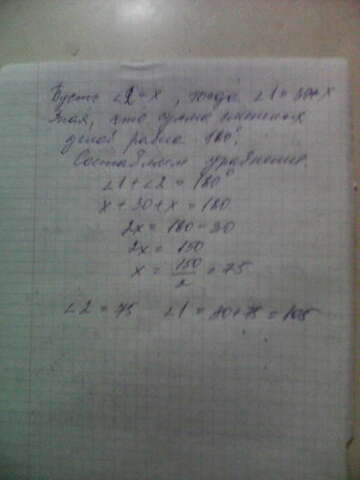 Пусть ∠2 = x, тогда ∠1 = 30+x
Зная, что сумма смежных
углов равна 180°,
Составляем уравнение.
∠1 + ∠2 = 180°
x + 30 + x = 180
2x = 180 - 30
2x = 150
x = 150/2 = 75
∠2 = 75 ∠1 = 30+75 = 105